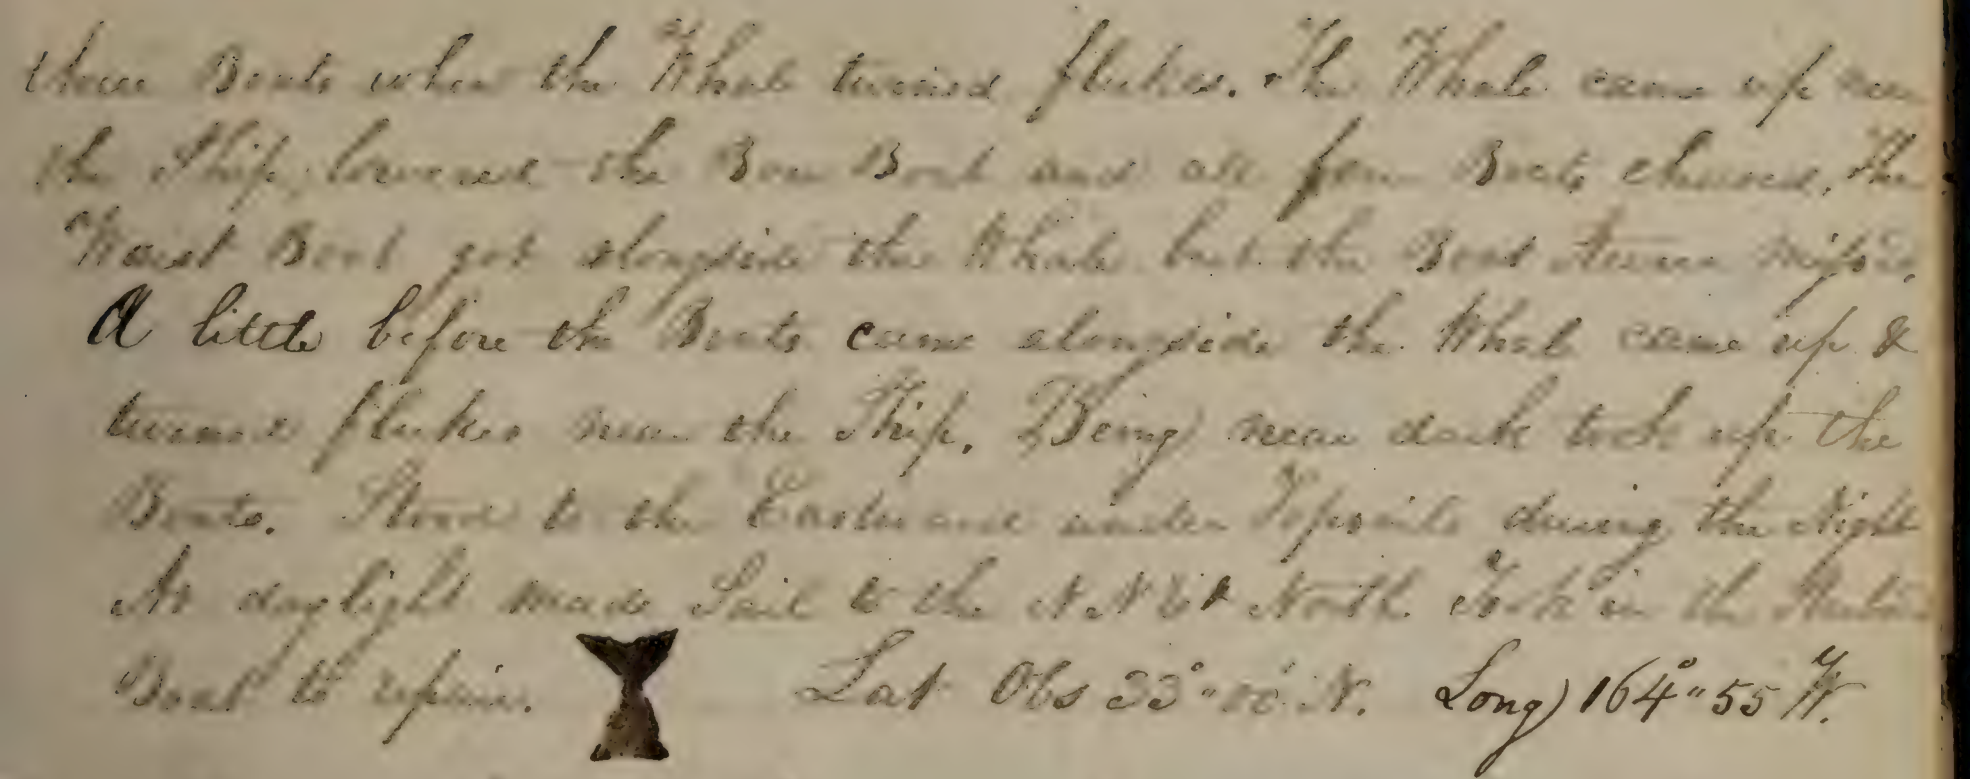 three Boats when the Whale turned flukes. The Whale came up near
the Ship, lowered the Bow Boat and all four Boats chased. The
Waist Boat got alongside the Whale but the Boat Steerer miss'd.
A little before the Boats came alongside the Whale came up &
turned flukes near the Ship. Being near dark took up the
Boats. Stood to the Eastward under Topsails during the Night
At daylight made Sail to the N N E & North. Took in the
Boat to repair. Lat Obs 33° N. Long 164°"55 W.